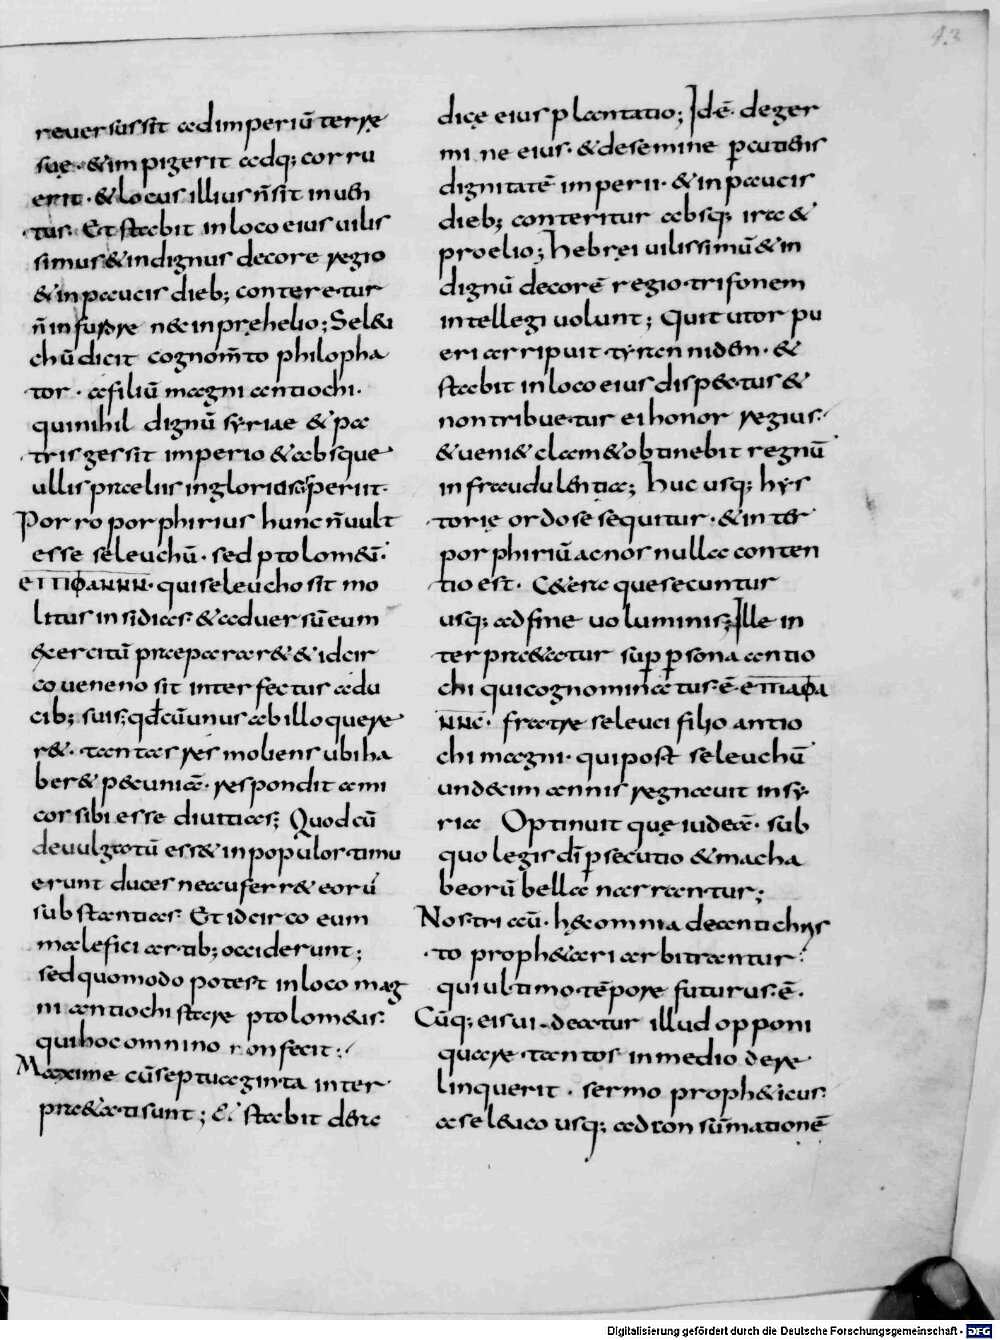 43
reuersus sit ad imperiū terrę
suę · & impigerit adq; corru
erit · & locus illius n̄ sit inuen
tus · Et stabit in loco eius uilis
simus & indignus decore regio
& in paucis dieb; conteretur
n̄ in furore nec in pręhelio; Seleu
chū dicit cognom̄to philopha
tor · a filiū magni antiochi ·
qui nihil dignū syriae & pa
tris gessit imperio & absque
ullis praeliis inglorius periit ·
Porro porphirius hunc n̄ uult
esse seleuchū · sed ptolomeū ·
ΕΠΙΦΑΝΝΝ · qui seleucho sit mo
litus insidias · & aduersū eum
exercitū praepararet & idcir
co ueneno sit interfectus a du
cib; suis; qđ cū unus ab illo quere
ret · tantas res moliens ubi ha
beret pecuniā · respondit ami
cos sibi esse diuitias; Quod cū
deuulgatū esset in populos · timu
erunt duces ne auferret eorū
substantias · Et idcirco eum
maleficis artib; occiderunt;
sed quomodo potest in loco mag
ni antiochi stare ptolomeus ·
qui hoc omnino non fecit :
Maxime cū septuaginta inter
praetati sunt; & stabit de ra
dice eius plantatio; Idē · de ger
mine eius · & de semine p̄cutiens
dignitatē imperii · & in paucis
dieb; conteritur absq; ira &
proelio; hebrei uilissimū & in
dignū decorē regio · trifonem
intellegi uolunt; Qui tutor pu
eri arripuit tyrannidem · &
stabit in loco eius dispectus &
non tribuetur ei honor regius ·
& ueni& clam & obtinebit regnū
in fraudulentia; Huc usq; hys
torię ordo sequitur · & inter
porphiriū ac nos nulla conten
tio est · Cetera que secuntur
usq; ad fine uoluminis; Ille in
terpraetatur sup p̄sona antio
chi qui cognominatus · ē · ΕΠΙΑΦΑ
ΝΝC · fratre seleuci filio antio
chi magni · qui post seleuchū
undecim annis regnauit in sy
ria Optinuit quę iudeā · sub
quo legis dī p̄secutio & macha
beorū bella narrantur;
Nostri aū · hec omnia de antichris
to prophetari arbitrantur ·
qui ultimo tēpore futurus · ē ·
Cūq; eis uideatur illud opponi
quare tantos in medio dere
linquerit · sermo propheticus ·
a seleuco usq; ad consūmationē
Digitalisierung gefördert durch die Deutsche Forschungsgemeinschaft · DFG